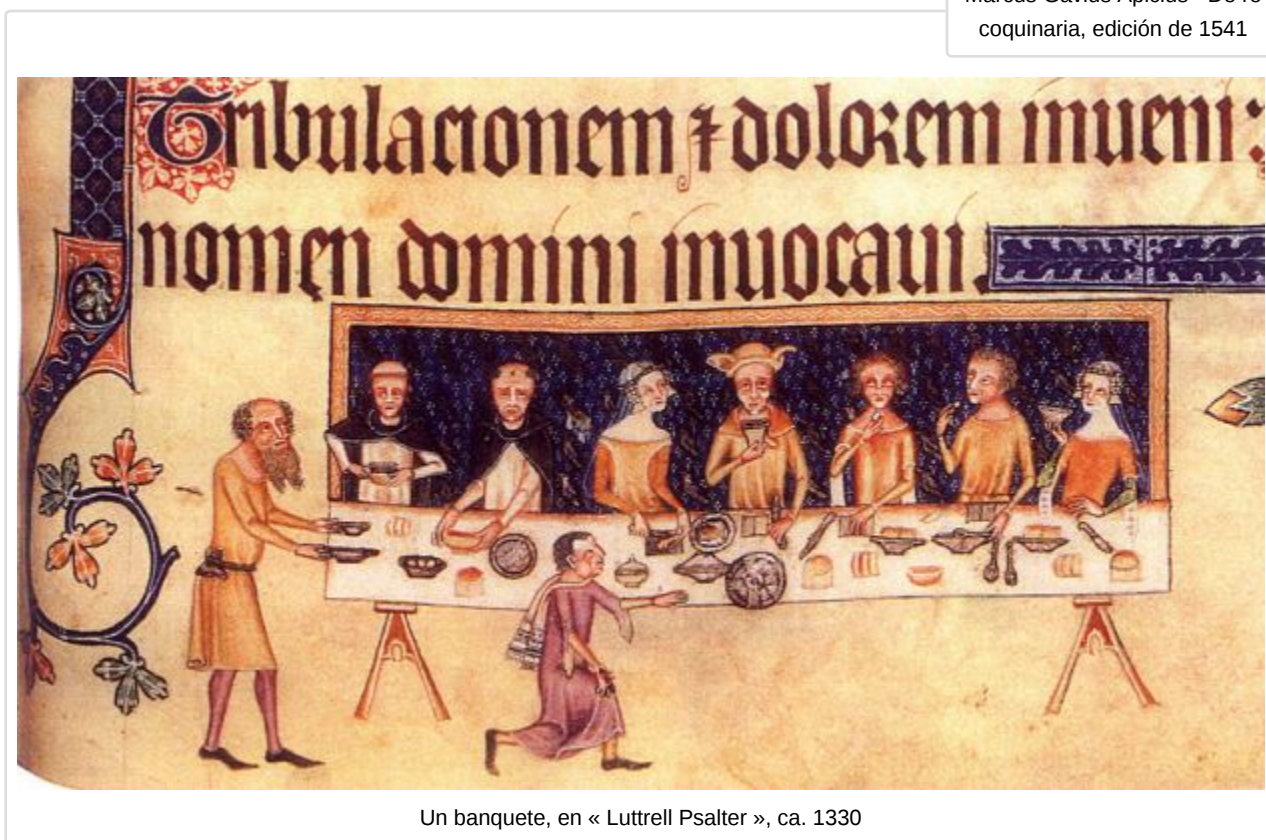 coquinaria, edición de 1541
Tribulacionem ⁊ dolorem inueni:
nomen domini inuocaui.
Un banquete, en « Luttrell Psalter », ca. 1330